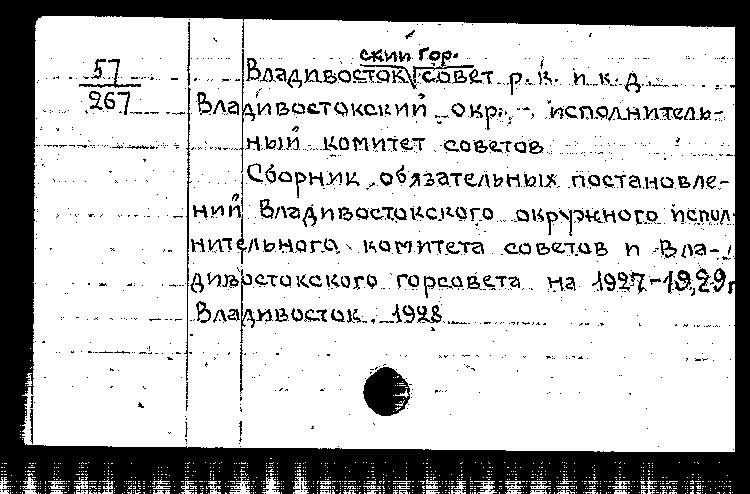 ский гор.
57 Владивосток совет р. к. и к. д.
267 Владивостокский окр. исполнитель-
ный комитет советов
Сборник обязательных постановле-
ний Владивостокского окружного испол-
нительного комитета советов и Вла-
дивостокского горсовета на 1927-1929г
Владивосток. 1928